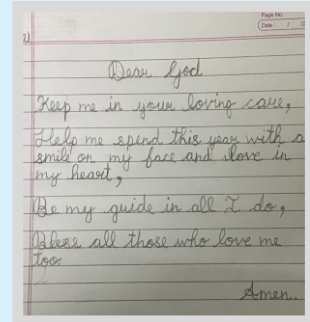 Page No.
Date : / /
2)
Dear God
Keep me in your loving care,
Help me spend this year with a
smile on my face and love in
my heart,
Be my guide in all I do,
Bless all those who love me
too.
Amen.